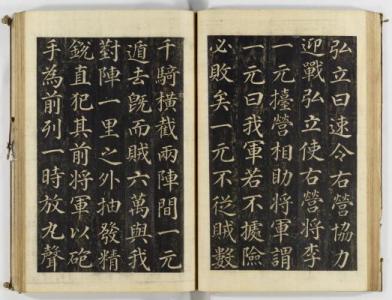 弘立曰速令右營協力
迎戰弘立使右營將李
一元擡營相助將軍謂
一元曰我軍若不據險
必敗矣一元不從賊數
千騎橫截兩陣間一元
遁去旣而賊六萬與我
對陣一里之外抽發精
銳直犯其前將軍以砲
手為前列一時放丸聲